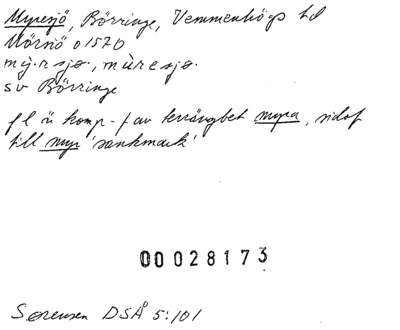 Myresjö, Börringe, Vemmenhögs hd
Mörsjö 01570
mý.r sjø., mùresjø.
sv Börringe
fl är komp. - f av terrängbet myra, sidof
till myr 'sankmark'
00028173
Sørensen DSÅ 5:101